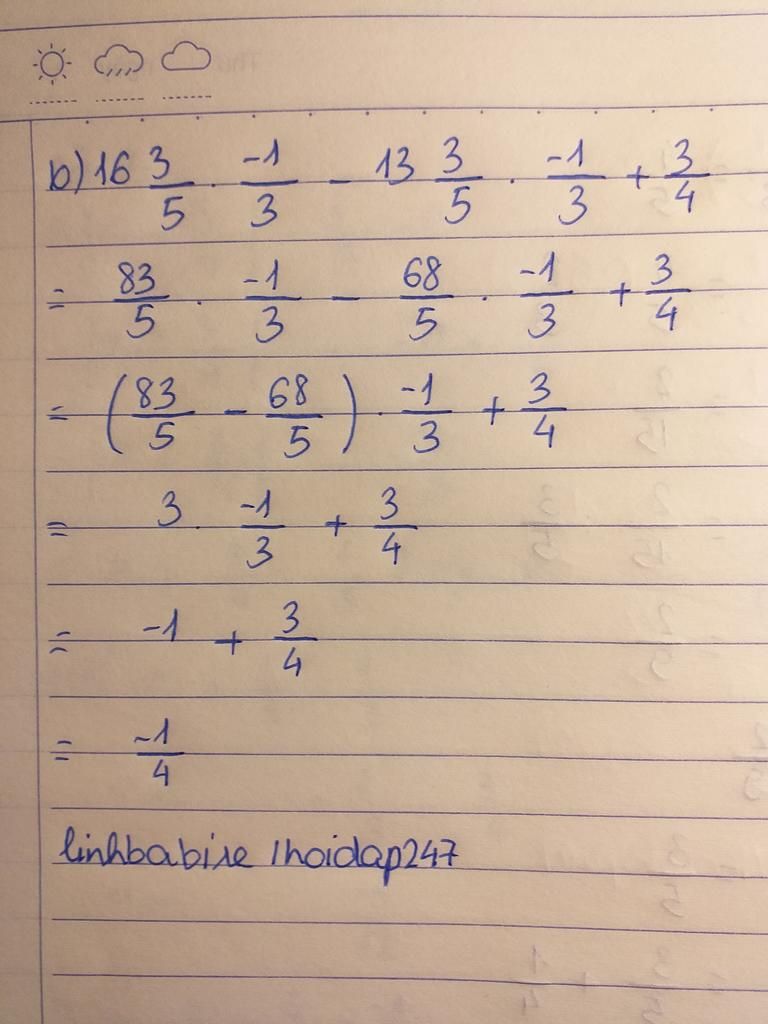 b) 16 3/5 . -1/3 - 13 3/5 . -1/3 + 3/4
= 83/5 . -1/3 - 68/5 . -1/3 + 3/4
= (83/5 - 68/5) . -1/3 + 3/4
= 3 . -1/3 + 3/4
= -1 + 3/4
= -1/4
linhbabixe /hoidap247